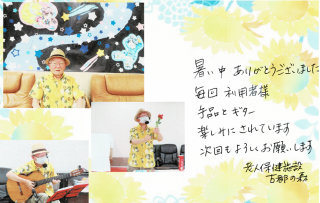 暑い中 ありがとうございました
毎回 利用者様
手品とギター
楽しみにされています
次回もよろしくお願いします
老人保健施設
古都の森